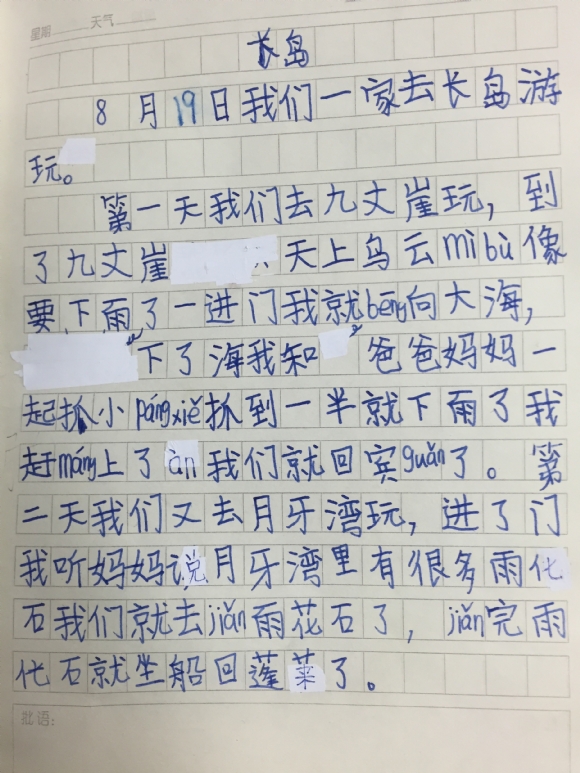 星期 天气
长岛
8月19日我们一家去长岛游
玩。
第一天我们去九丈崖玩，到
了九丈崖 天上乌云mìbù像
要下雨了一进门我就bēng向大海，
下了海我知 爸爸妈妈一
起抓小pángxiě抓到一半就下雨了我
赶máng上了àn我们就回宾guǎn了。第
二天我们又去月牙湾玩，进了门
我听妈妈说月牙湾里有很多雨化
石我们就去jiǎn雨花石了，jiǎn完雨
化石就坐船回蓬莱了。
批语：